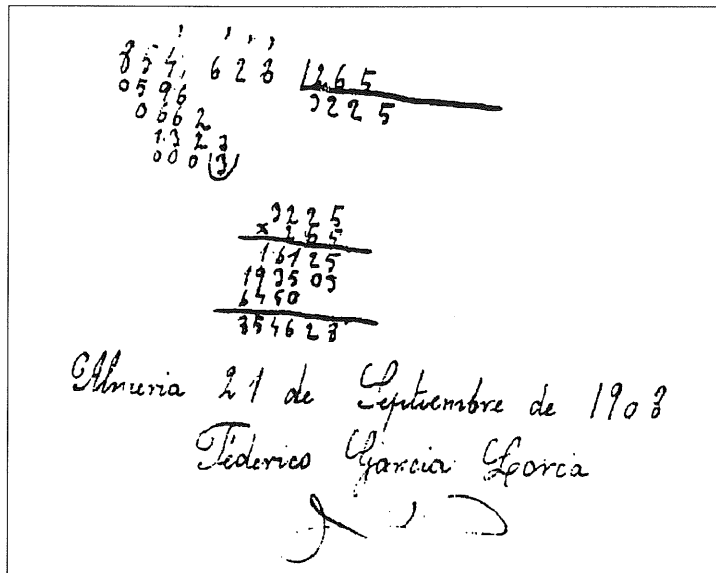 854,628 | 265
0596 3225
0662
1323
0003
3225
x 265
16125
193503
6450
854628
Almeria 21 de Septiembre de 1908
Federico Garcia Lorca